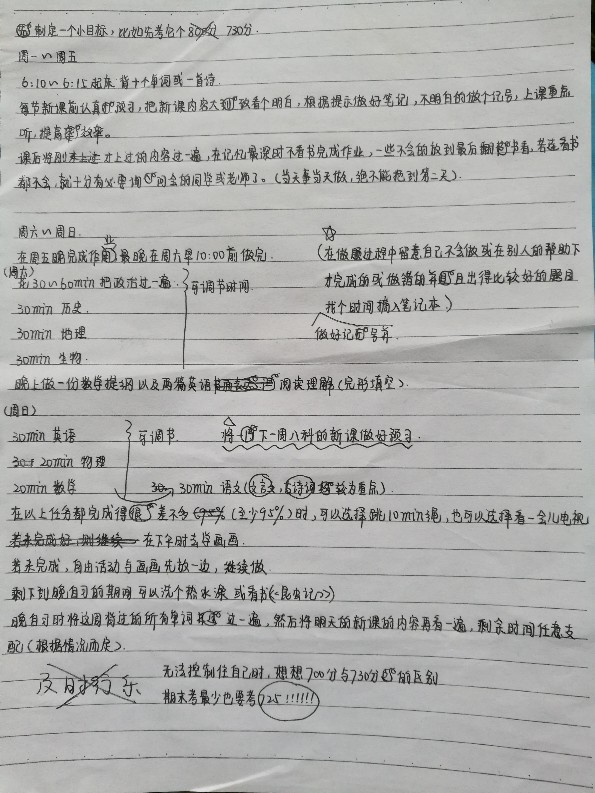 制定一个小目标，比如先考它个 730分.
周一~周五
6:10~6:15起床 背十个单词或一首诗.
每节新课前认真预习，把新课内容大致看个明白，根据提示做好笔记，不明白的做个记号，上课重点
听，提高效率。
课后将刚才上过的内容过一遍，在记忆最深时不看书完成作业，一些不会的放到最后翻书看，若连看书
都不会，就十分有必要询问会的同学或老师了。(当天事当天做，绝不能拖到第二天).
周六~周日.
在周五晚完成作业 最晚在周六早10:00前做完. (在做题过程中留意自己不会做或在别人的帮助下
(周六)
花30~60min 把政治过一遍. 可调节时间. 才完成的或做错的并且出得比较好的题目
30min 历史. 找个时间摘入笔记本.)
30min 地理 做好记号并
30min 生物.
晚上做一份数学提纲以及两篇英语 阅读理解(完形填空).
(周日)
30min 英语 可调节. 将下一周八科的新课做好预习.
20min 物理
20min 数学 30min 语文(文言文，古诗词 较为重点).
在以上任务都完成得差不多 (至少95%)时，可以选择跳10min绳，也可以选择看一会儿电视
在下午时去学画画.
若未完成，自由活动与画画先放一边，继续做.
剩下到晚自习的期间可以洗个热水澡 或看书(《昆虫记》)
晚自习时将这周背过的所有单词 过一遍，然后将明天的新课的内容再看一遍，剩余时间任意支
配(根据情况而定).
及时行乐 无法控制住自己时，想想700分与730分的区别
期末考最少也要考725!!!!!!